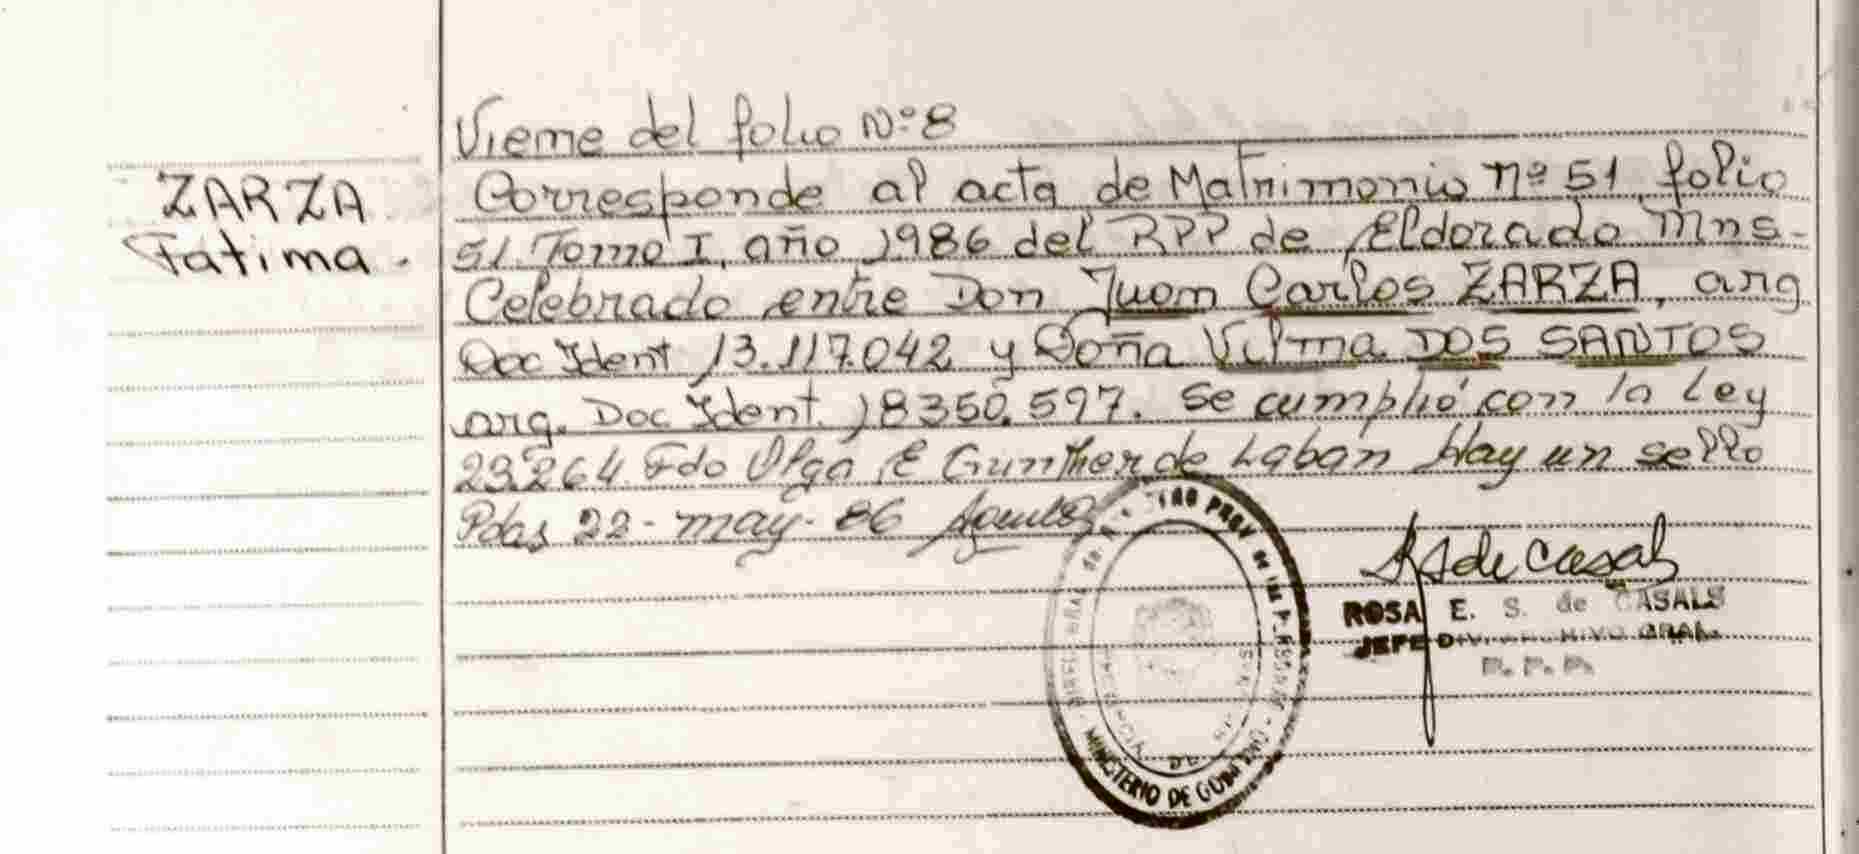 Viene del folio Nº 8
ZARZA
Fatima.
Corresponde al acta de Matrimonio nº 51 folio
51. Tomo I, año 1986 del RPP de Eldorado Mns.-
Celebrado entre Don Juan Carlos ZARZA, arg
Doc Ident 13.117.042 y Doña Vilma DOS SANTOS
arg. Doc Ident. 18350.597. Se cumplió con la Ley
23.264. Fdo Olga E Gunther de Laban Hay un sello
Pdas 22-may-86
de Casals
ROSA E. S. de CASALS
JEFE DIV. ARCHIVO GRAL.
R. P. P.
PROV de las
MINISTERIO DE GOBIERNO